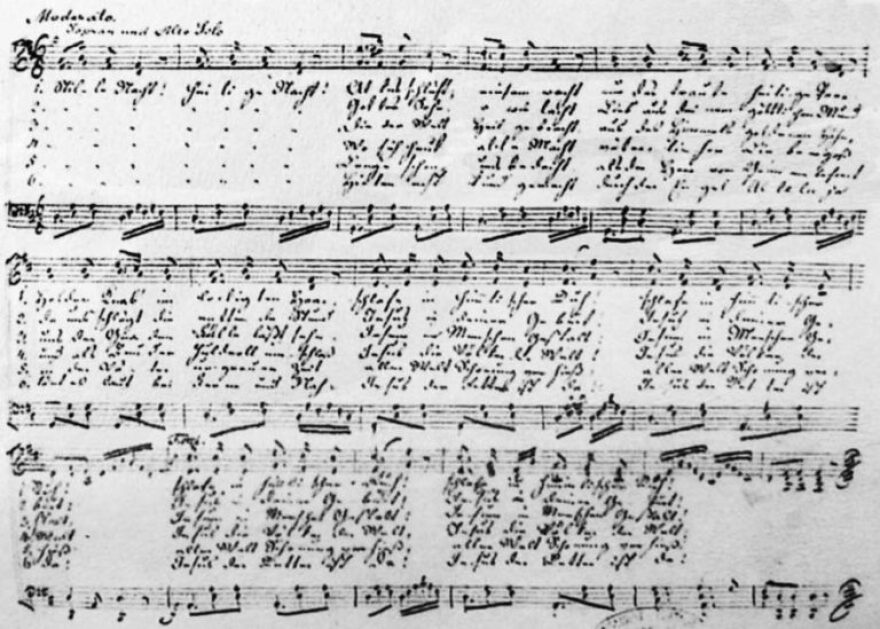 Moderato.
Sopran und Alto Solo
1. Stille Nacht! Heilige Nacht! Alles schläft; einsam wacht nur das traute heilige Paar
2. Gottes Sohn, o wie lacht Lieb aus deinem göttlichen Mund
3. Die der Welt Heil gebracht, aus des Himmels goldenen Höhn,
4. Wo sich heut alle Macht väterlicher Liebe ergoß
5. Lange schon uns bedacht als der Herr vom Grimme befreit
6. Hirten erst kund gemacht durch der Engel Alleluja
1. Holder Knab im lockigten Haar, schlafe in himmlischer Ruh! schlafe in himmlischer
2. da uns schlägt die rettende Stund Jesus in deiner Geburt! Jesus in deiner Ge
3. uns der Gnaden Fülle läßt sehn, Jesum in Menschen Gestalt, Jesum in Menschen Ge
4. und als Bruder huldvoll umschloß Jesus die Völker der Welt! Jesus die Völker der
5. in der Väter urgrauer Zeit aller Welt Schonung verhieß! aller Welt Schonung ver
6. laut bei Ferne und Nah: Jesus der Retter ist da! Jesus der Retter ist
1. Ruh! schlafe in himmlischer Ruh! schlafe in himmlischer Ruh!
2. burt! Jesus in deiner Geburt! Jesus in deiner Geburt!
3. stalt. Jesum in Menschen Gestalt, Jesum in Menschen Gestalt!
4. Welt Jesus die Völker der Welt! Jesus die Völker der Welt
5. hieß aller Welt Schonung verhieß; aller Welt Schonung verhieß!
6. da! Jesus der Retter ist da! Jesus der Retter ist da!